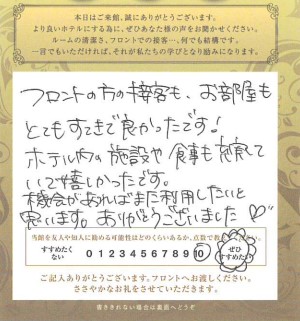 本日はご来館、誠にありがとうございます。
より良いホテルにする為に、ぜひあなた様の声をお聞かせください。
ルームの清潔さ、フロントでの接客…、何でも結構です。
一言でもいただければ、それが私たちの学びとなり励みになります。
フロントの方の接客も、お部屋も
とてもすてきで良かったです!
ホテル内の施設や食事も充実して
いて嬉しかったです。
機会があればまた利用したいと
思います。ありがとうございました♡
当館を友人や知人に薦める可能性はどのくらいあるか、点数で教
すすめたく
ない
0 1 2 3 4 5 6 7 8 9 10
ぜひ
すすめたい
ご記入ありがとうございます。フロントへお渡しください。
ささやかなお礼をさせていただきます。
書ききれない場合は裏面へどうぞ